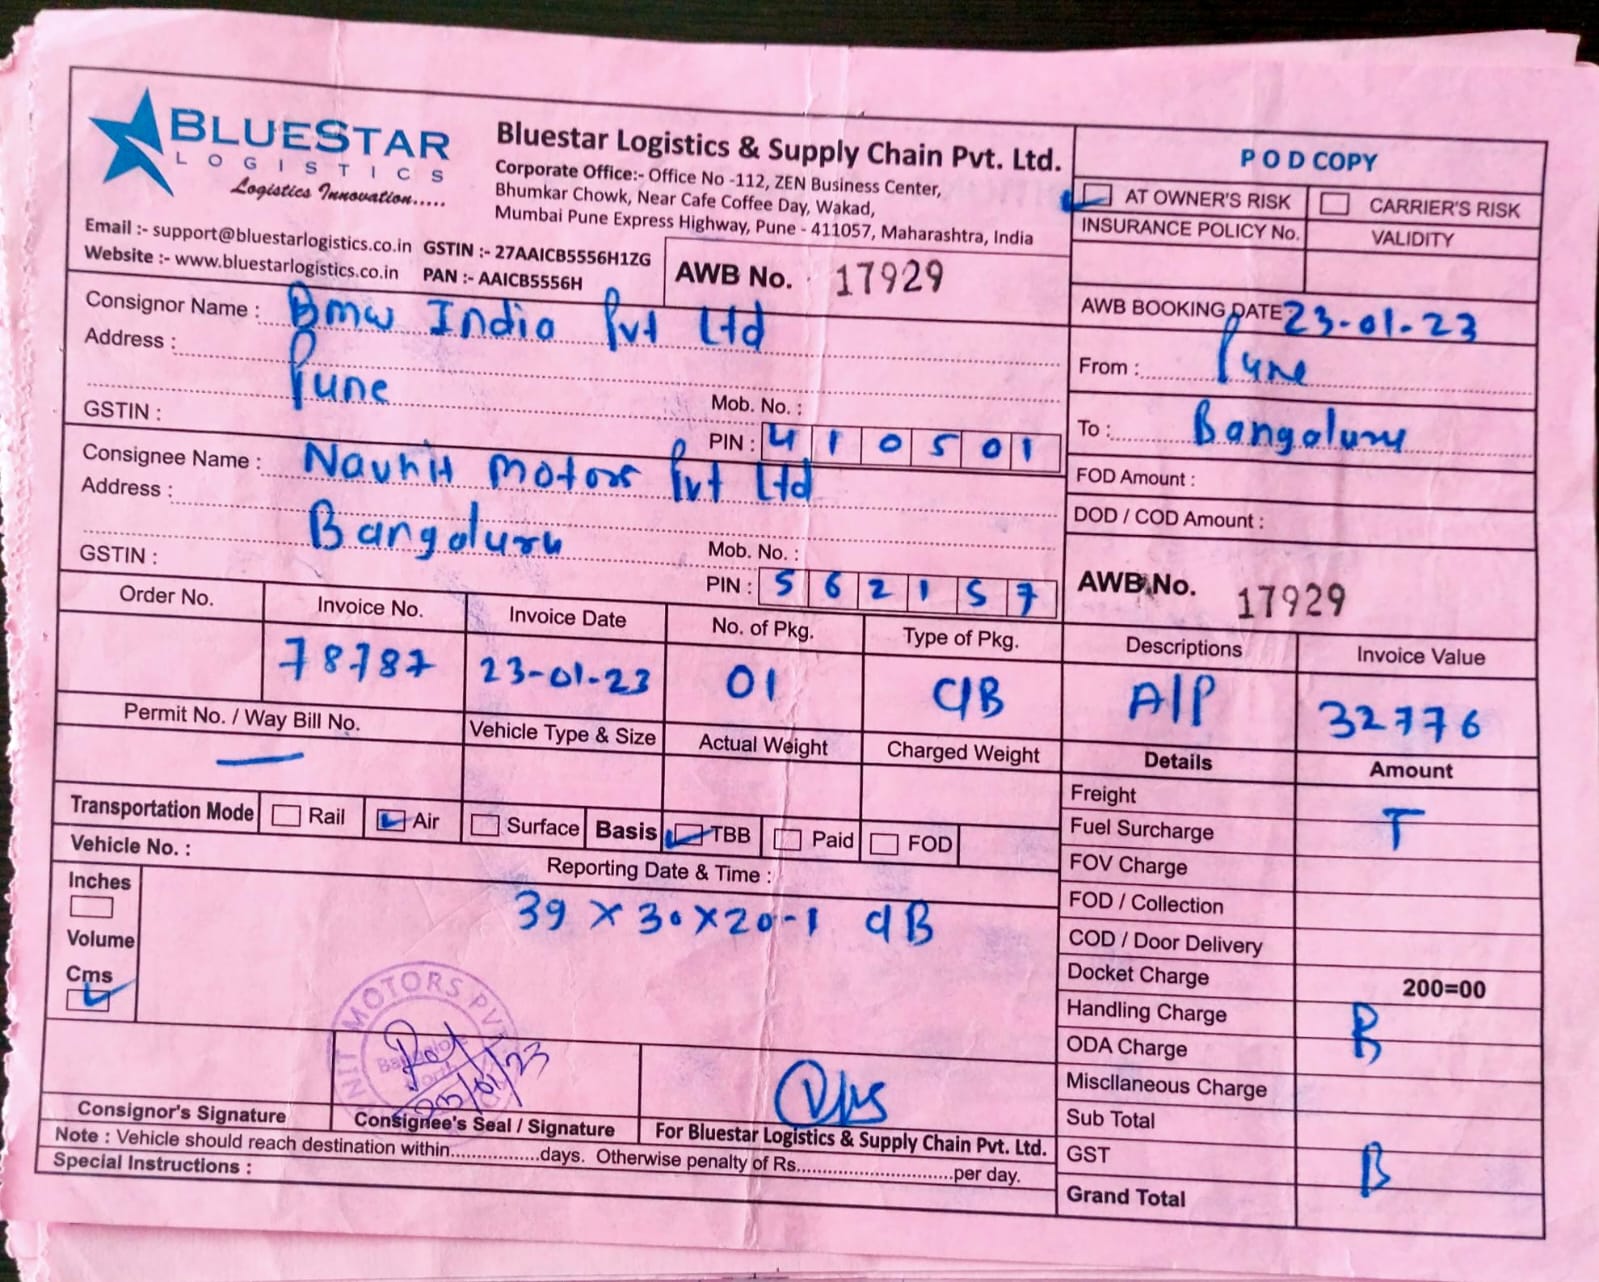 BLUESTAR
LOGISTICS
Logistics Innovation.....
Email :- support@bluestarlogistics.co.in
Website :- www.bluestarlogistics.co.in
Bluestar Logistics & Supply Chain Pvt. Ltd.
Corporate Office:- Office No -112, ZEN Business Center,
Bhumkar Chowk, Near Cafe Coffee Day, Wakad,
Mumbai Pune Express Highway, Pune - 411057, Maharashtra, India
GSTIN :- 27AAICB5556H1ZG
PAN :- AAICB5556H
AWB No. 17929
POD COPY
AT OWNER'S RISK CARRIER'S RISK
INSURANCE POLICY No. VALIDITY
AWB BOOKING DATE 23-01-23
From : Pune
To : Bangaluru
FOD Amount :
DOD / COD Amount :
AWB No. 17929
Consignor Name : Bmw India Pvt Ltd
Address :
Pune
Mob. No. :
GSTIN :
PIN : 410501
Consignee Name : Navnit Motors Pvt Ltd
Address :
Bangaluru
Mob. No. :
GSTIN :
PIN : 562157
Order No. Invoice No. Invoice Date No. of Pkg. Type of Pkg. Descriptions Invoice Value
78787 23-01-23 01 C/B A/P 32776
Permit No. / Way Bill No. Vehicle Type & Size Actual Weight Charged Weight Details Amount
—
Transportation Mode Rail Air Surface Basis TBB Paid FOD
Vehicle No. : Reporting Date & Time :
Inches
Volume
Cms
39 X 30 X 20-1 C/B
Freight
Fuel Surcharge T
FOV Charge
FOD / Collection
COD / Door Delivery
Docket Charge 200=00
Handling Charge
ODA Charge B
Miscllaneous Charge
Sub Total
GST B
Grand Total
NIT MOTORS PVT
Bangalore
North
Consignor's Signature Consignee's Seal / Signature For Bluestar Logistics & Supply Chain Pvt. Ltd.
Note : Vehicle should reach destination within.................days. Otherwise penalty of Rs..............................per day.
Special Instructions :